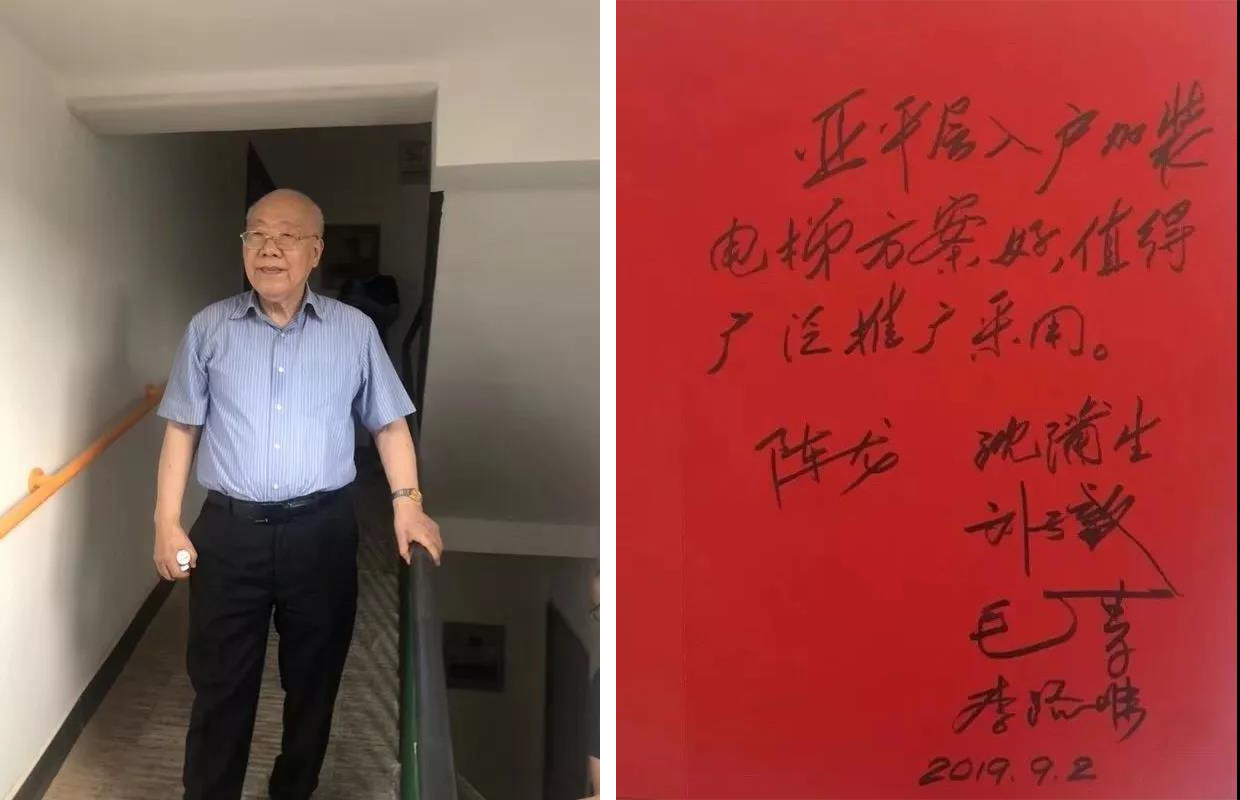 亚平层入户加装
电梯方案好,值得
广泛推广采用。
陈龙 沈蒲生
毛
李
2019.9.2